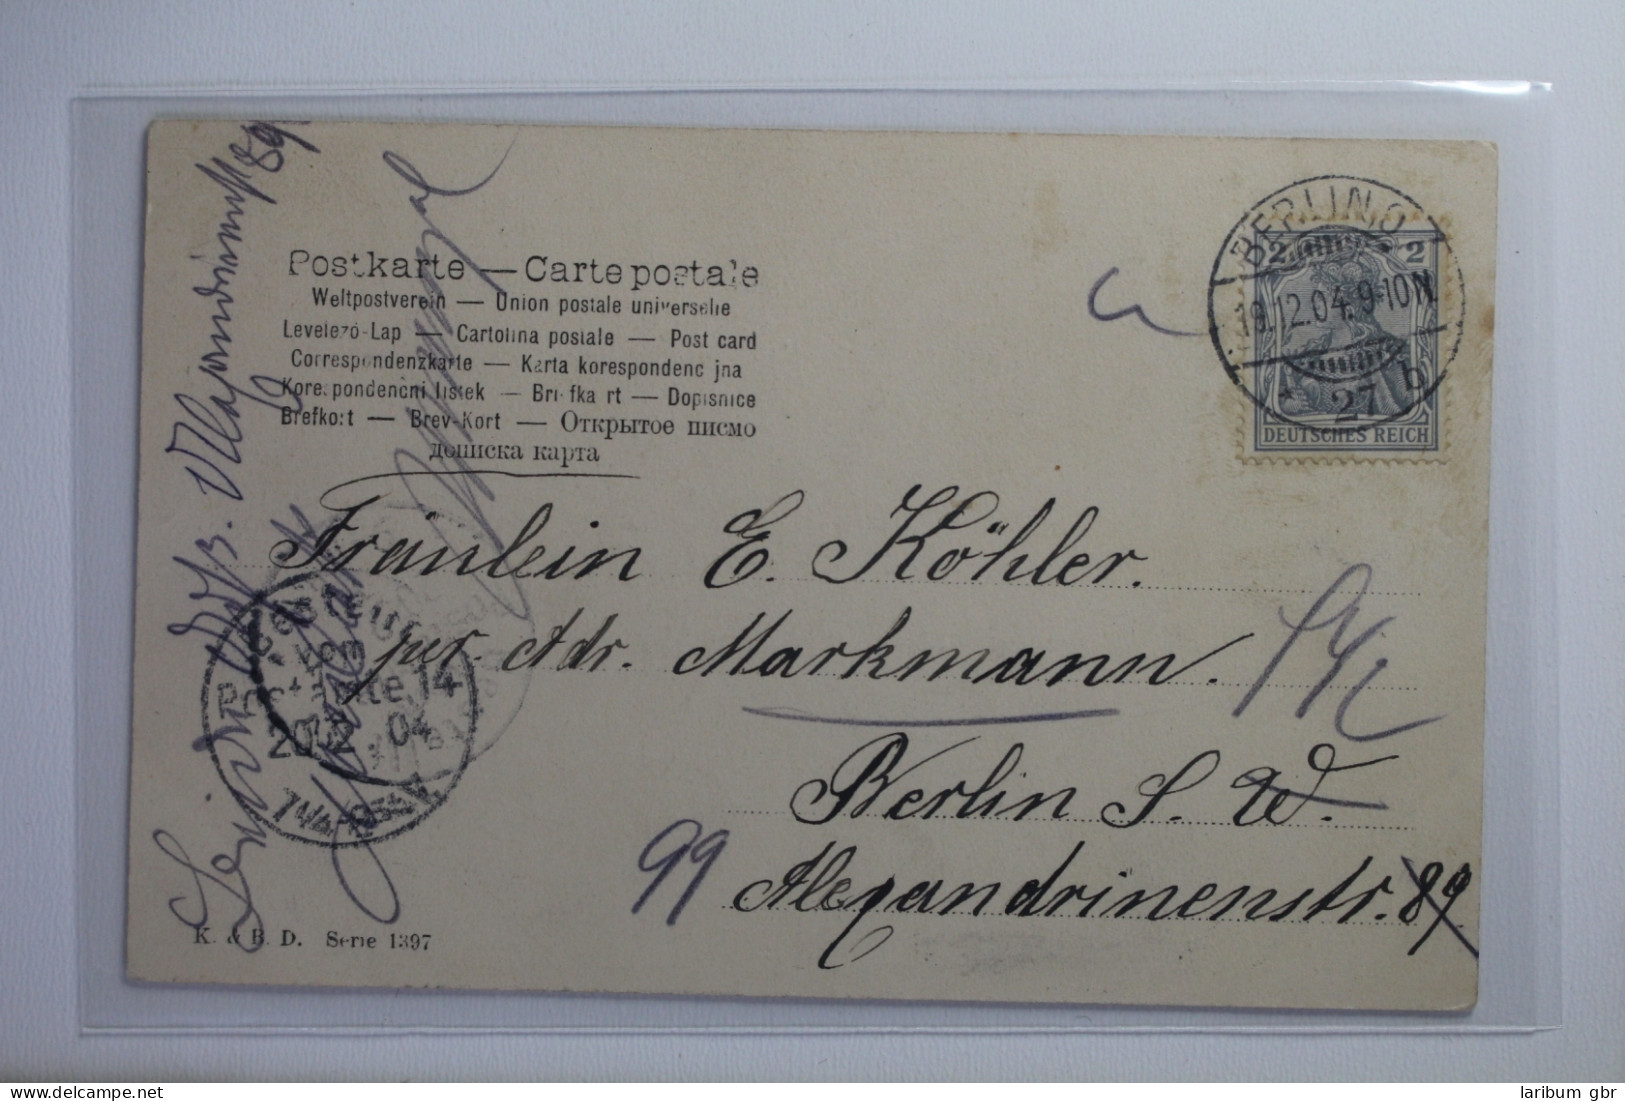 Postkarte — Carte postale
Weltpostverein — Union postale universelle
Levelező-Lap — Cartolina postale — Post card
Correspondenzkarte — Karta korespondencyjna
Korespondenční lístek — Briefkaart — Dopisnice
Brefkort — Brev-Kort — Открытое письмо
дописка карта
BERLIN O
19.12.04.9-10N.
* 27 b
2 2
DEUTSCHES REICH
Fräulein E. Köhler.
per. Adr. Markmann.
Berlin S. W.
99
Alexandrinenstr. 89
K. & B. D. Serie 1397
vom
74
20.12.04
89
laribum gbr